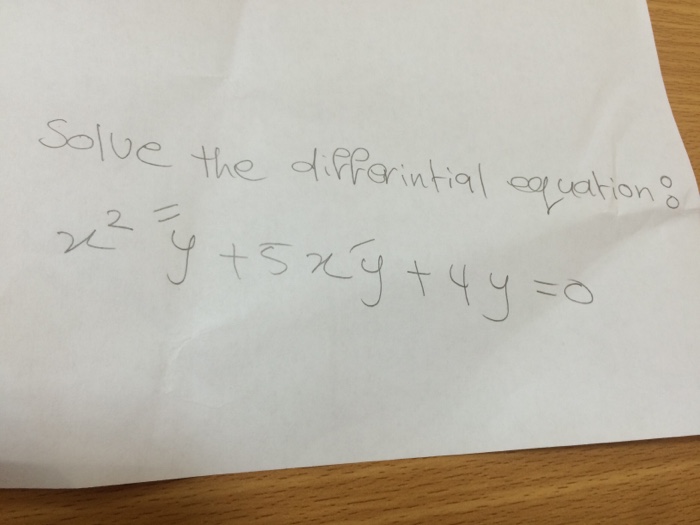 Solve the differintial equation:
x² y̿ + 5xy̅ + 4y = 0